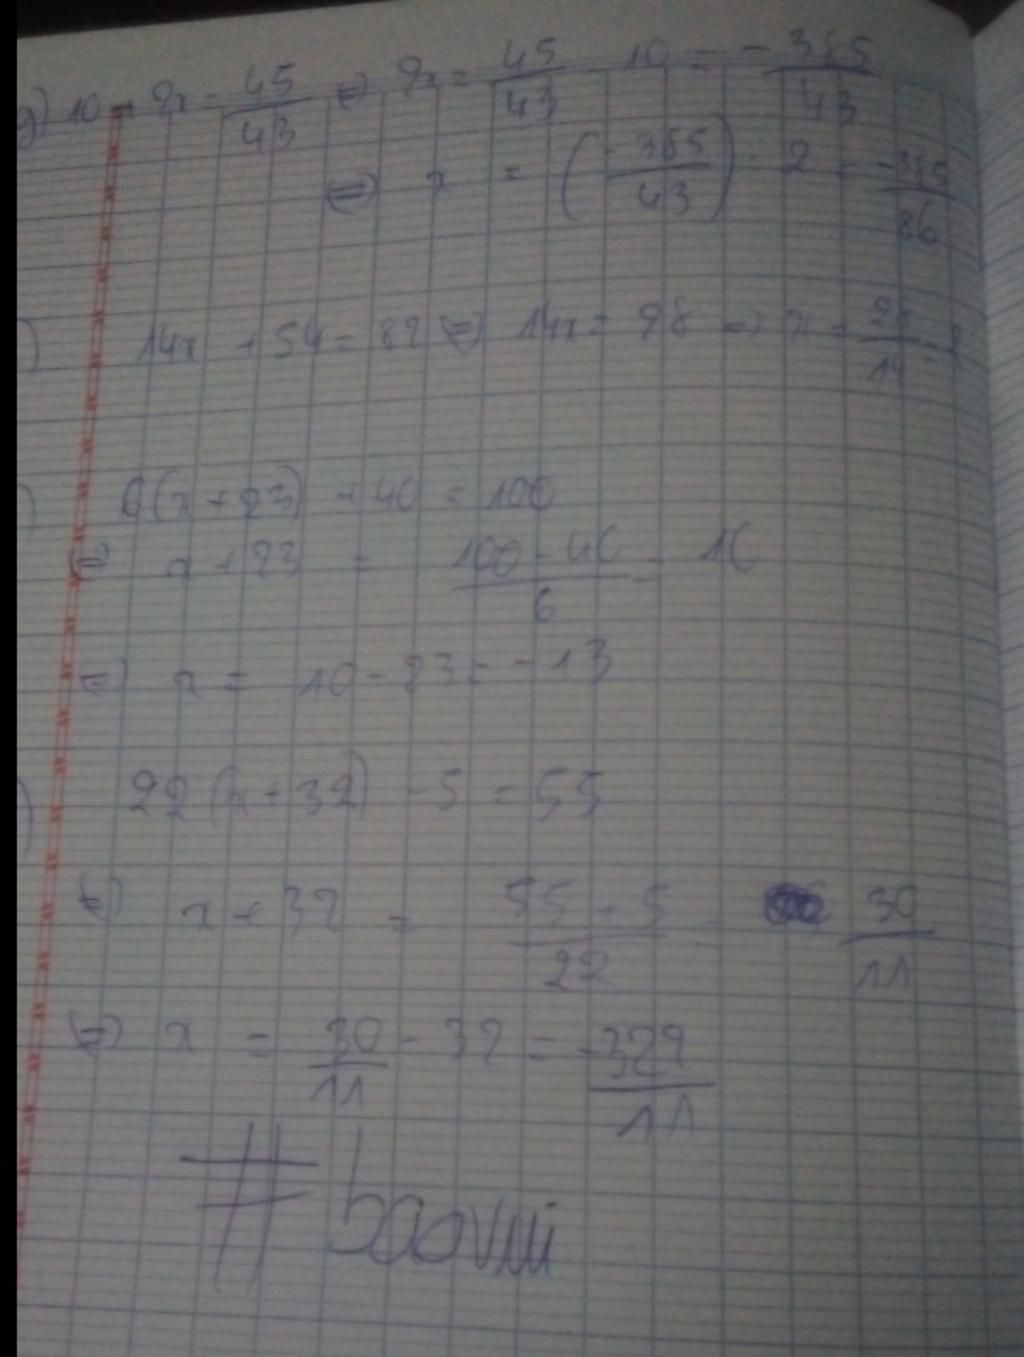 g) 10 - 2x = 45/43 ⇔ 2x = 45/43 - 10 = - 385/43
⇔ x = (-385/43) : 2 = -385/86
) 14x + 54 = 82 ⇔ 14x = 28 ⇒ x = 28/14 = 2
) 6(x + 23) + 40 = 100
⇔ x + 23 = (100 - 40)/6 = 10
⇔ x = 10 - 23 = -13
) 22(x + 32) - 5 = 55
⇔ x + 32 = (55 + 5)/22 = 30/11
⇔ x = 30/11 - 32 = -329/11
# baovui